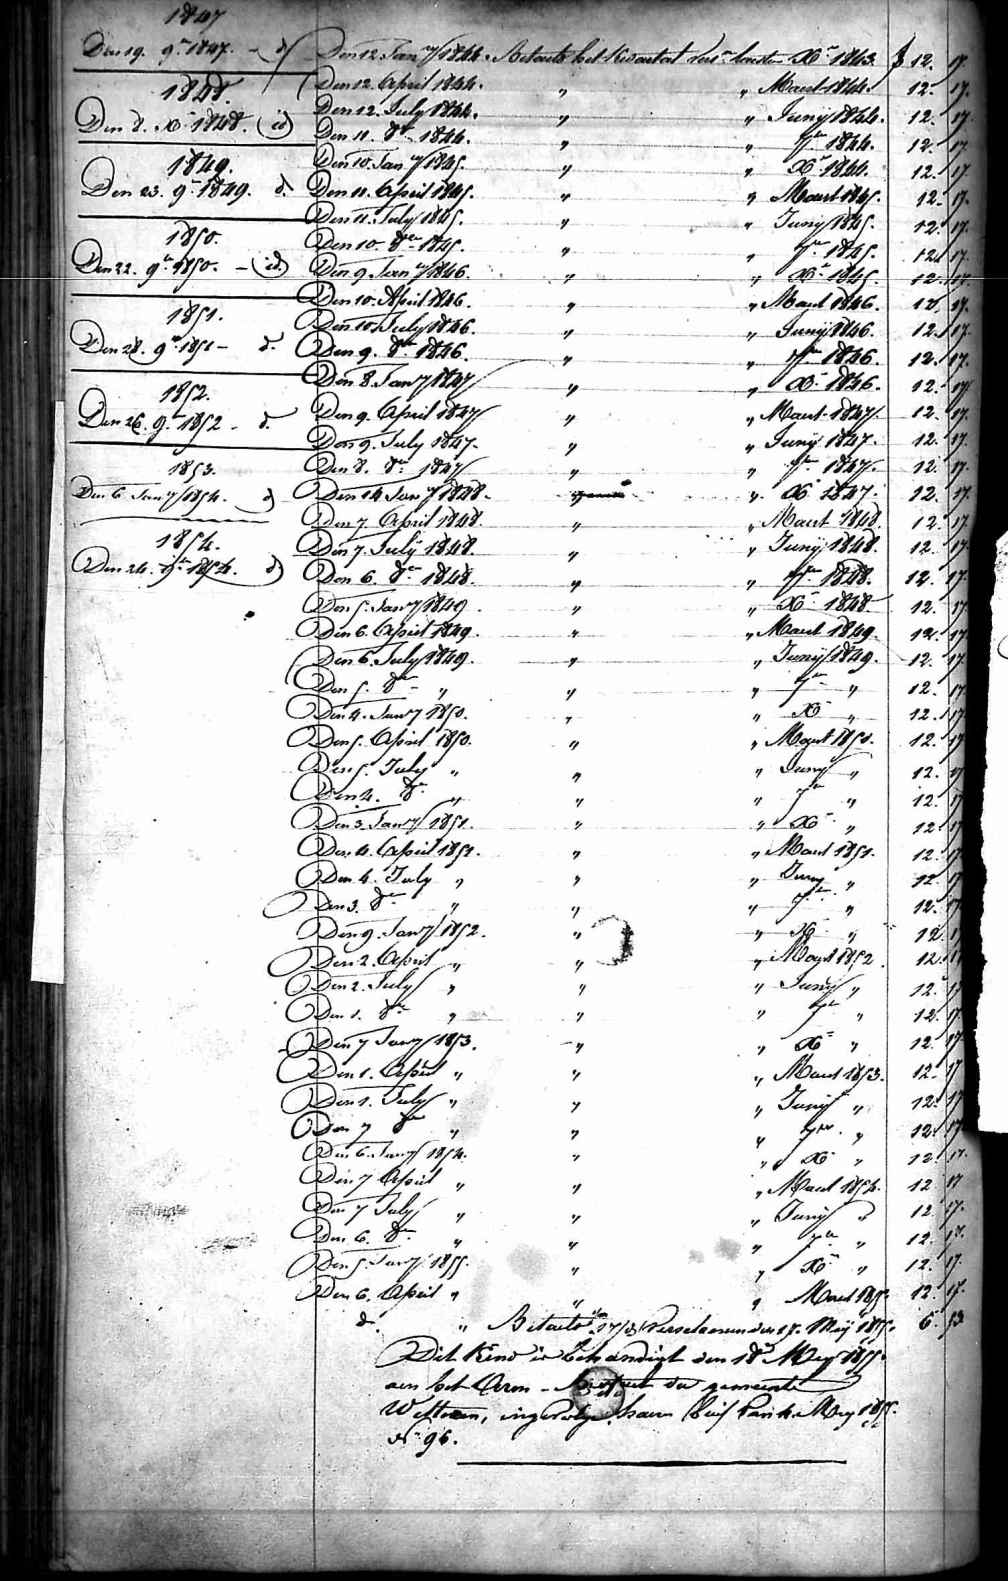 1847
Den 19. 9er 1847. - d
1848.
Den 8. Xr 1848. (id)
1849.
Den 23. 9r 1849. d.
1850.
Den 22. 9r 1850. - (id)
1851.
Den 28. 9r 1851 - d.
1852.
Den 26. 9r 1852 - d.
1853.
Den 6 Jany 1854. d
1854.
Den 24. 9r 1854. d
Den 12 Jany 1844. Betaald het Kwartaal Xr 1843. f 12. 17.
Den 12. April 1844. " " Maart 1844. 12. 17.
Den 12. July 1844. " " Juny 1844. 12. 17
Den 11. 8r 1844. " " 7r 1844. 12. 17
Den 10. Jany 1845. " " Xr 1844. 12. 17
Den 11. April 1845. " " Maart 1845. 12. 17.
Den 11. July 1845. " " Juny 1845. 12. 17.
Den 10 8r 1845. " " 7r 1845. 12. 17.
Den 9 Jany 1846. " " Xr 1845. 12. 17.
Den 10. April 1846. " " Maart 1846. 12. 17.
Den 10 July 1846. " " Juny 1846. 12. 17.
Den 9. 8r 1846. " " 7r 1846. 12. 17.
Den 8. Jany 1847 " " Xr 1846. 12. 17
Den 9. April 1847 " " Maart 1847 12. 17.
Den 9. July 1847. " " Juny 1847. 12. 17.
Den 8. 8r 1847 " " 7r 1847. 12. 17.
Den 14 Jany 1848. " Xr 1847. 12. 17.
Den 7 April 1848. " " Maart 1848 12. 17.
Den 7. July 1848. " " Juny 1848. 12. 17
Den 6. 8r 1848. " " 7r 1848. 12. 17.
Den 5. Jany 1849. " " Xr 1848. 12. 17.
Den 6. April 1849. " " Maart 1849. 12. 17
Den 6. July 1849. " " Juny 1849. 12. 17.
Den 5. 8r " " " 7r " 12. 17
Den 4. Jany 1850. " " Xr " 12. 17.
Den 5. April 1850. " " Maart 1850. 12. 17
Den 5. July " " " Juny " 12. 17
Den 4. 8r " " " 7r " 12. 17
Den 3. Jany 1851. " " Xr " 12. 17
Den 4. April 1851. " " Maart 1851. 12. 17
Den 4. July " " " Juny " 12. 17
Den 3. 8r " " " 7r " 12. 17
Den 9. Jany 1852. " " Xr " 12. 17
Den 2. April " " " Maart 1852 12. 17
Den 2. July " " " Juny " 12. 17
Den 1. 8r " " " 7r " 12. 17.
Den 7 Jany 1853. " " Xr " 12. 17
Den 1. April " " " Maart 1853. 12. 17
Den 1. July " " " Juny " 12. 17
Den 7 8r " " " 7r " 12. 17
Den 6. Jany 1854. " " Xr " 12. 17.
Den 7 April " " " Maart 1854. 12. 17
Den 7 July " " " Juny " 12. 17.
Den 6. 8r " " " 7r " 12. 17.
Den 5. Jany 1855. " " Xr " 12. 17.
Den 6. April " " " Maart 1855. 12. 17.
d. " Betaald den 17. Mey 1855. 6. 93.
Dit Kind is behandigt den 18 Mey 1855.
aen het Arm - der gemeente
ingevolge haren brief van 14 Mey 1855.
No 96.